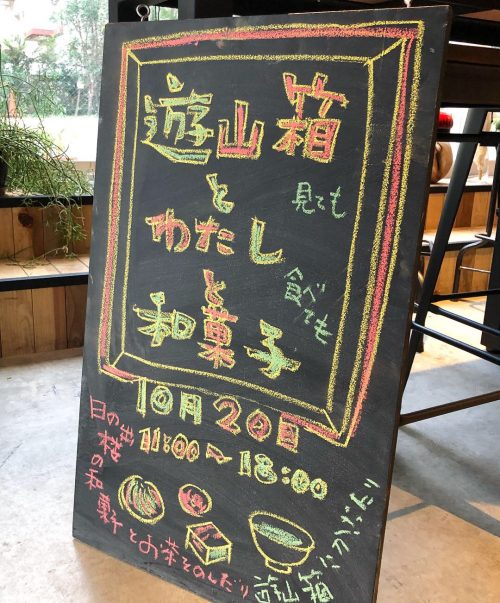 遊山箱
と
わたし
と
和菓子
見ても
食べても
10月20日
11:00～18:00
日の出楼の和菓子とお茶をのんだり
遊山箱にかざったり